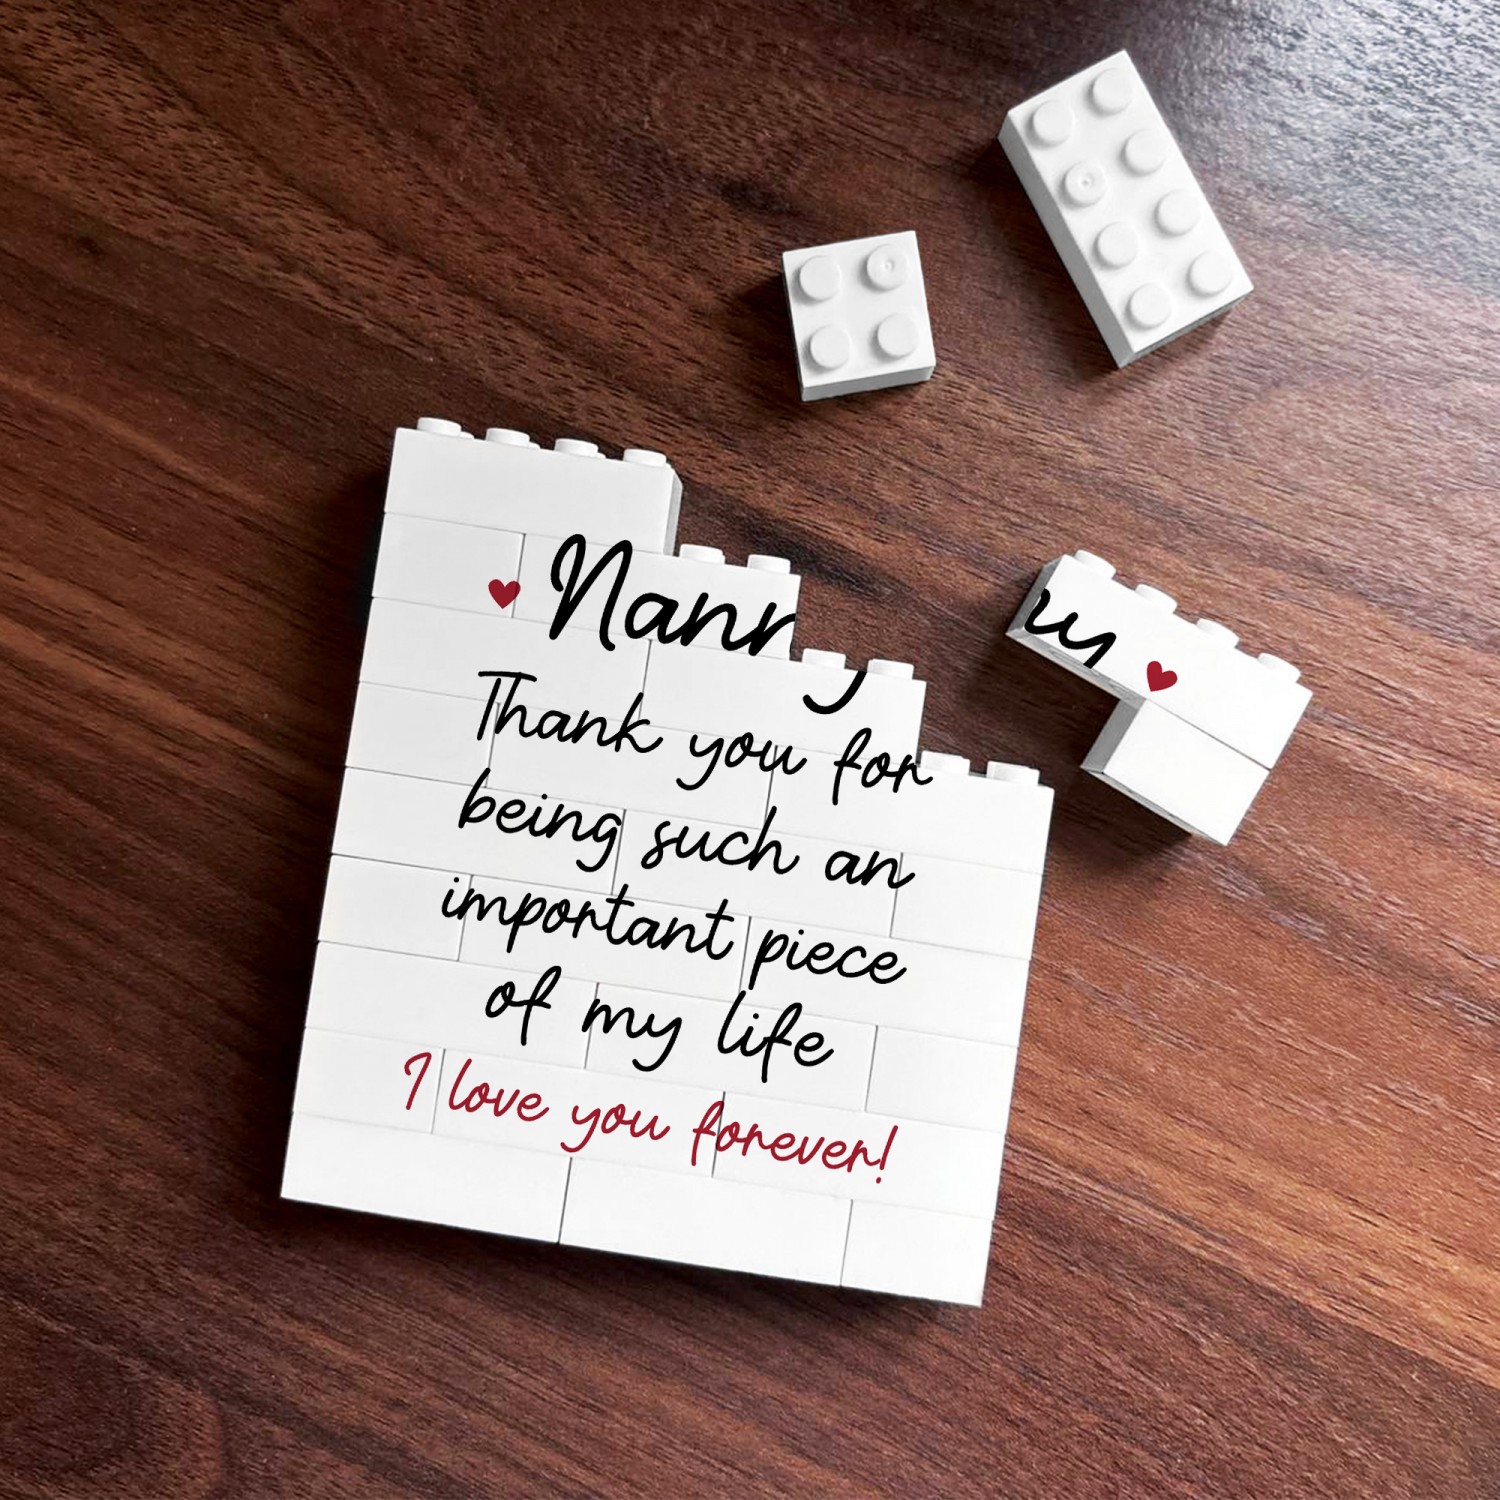 ❤ Nanny ❤
Thank you for
being such an
important piece
of my life
I love you forever!